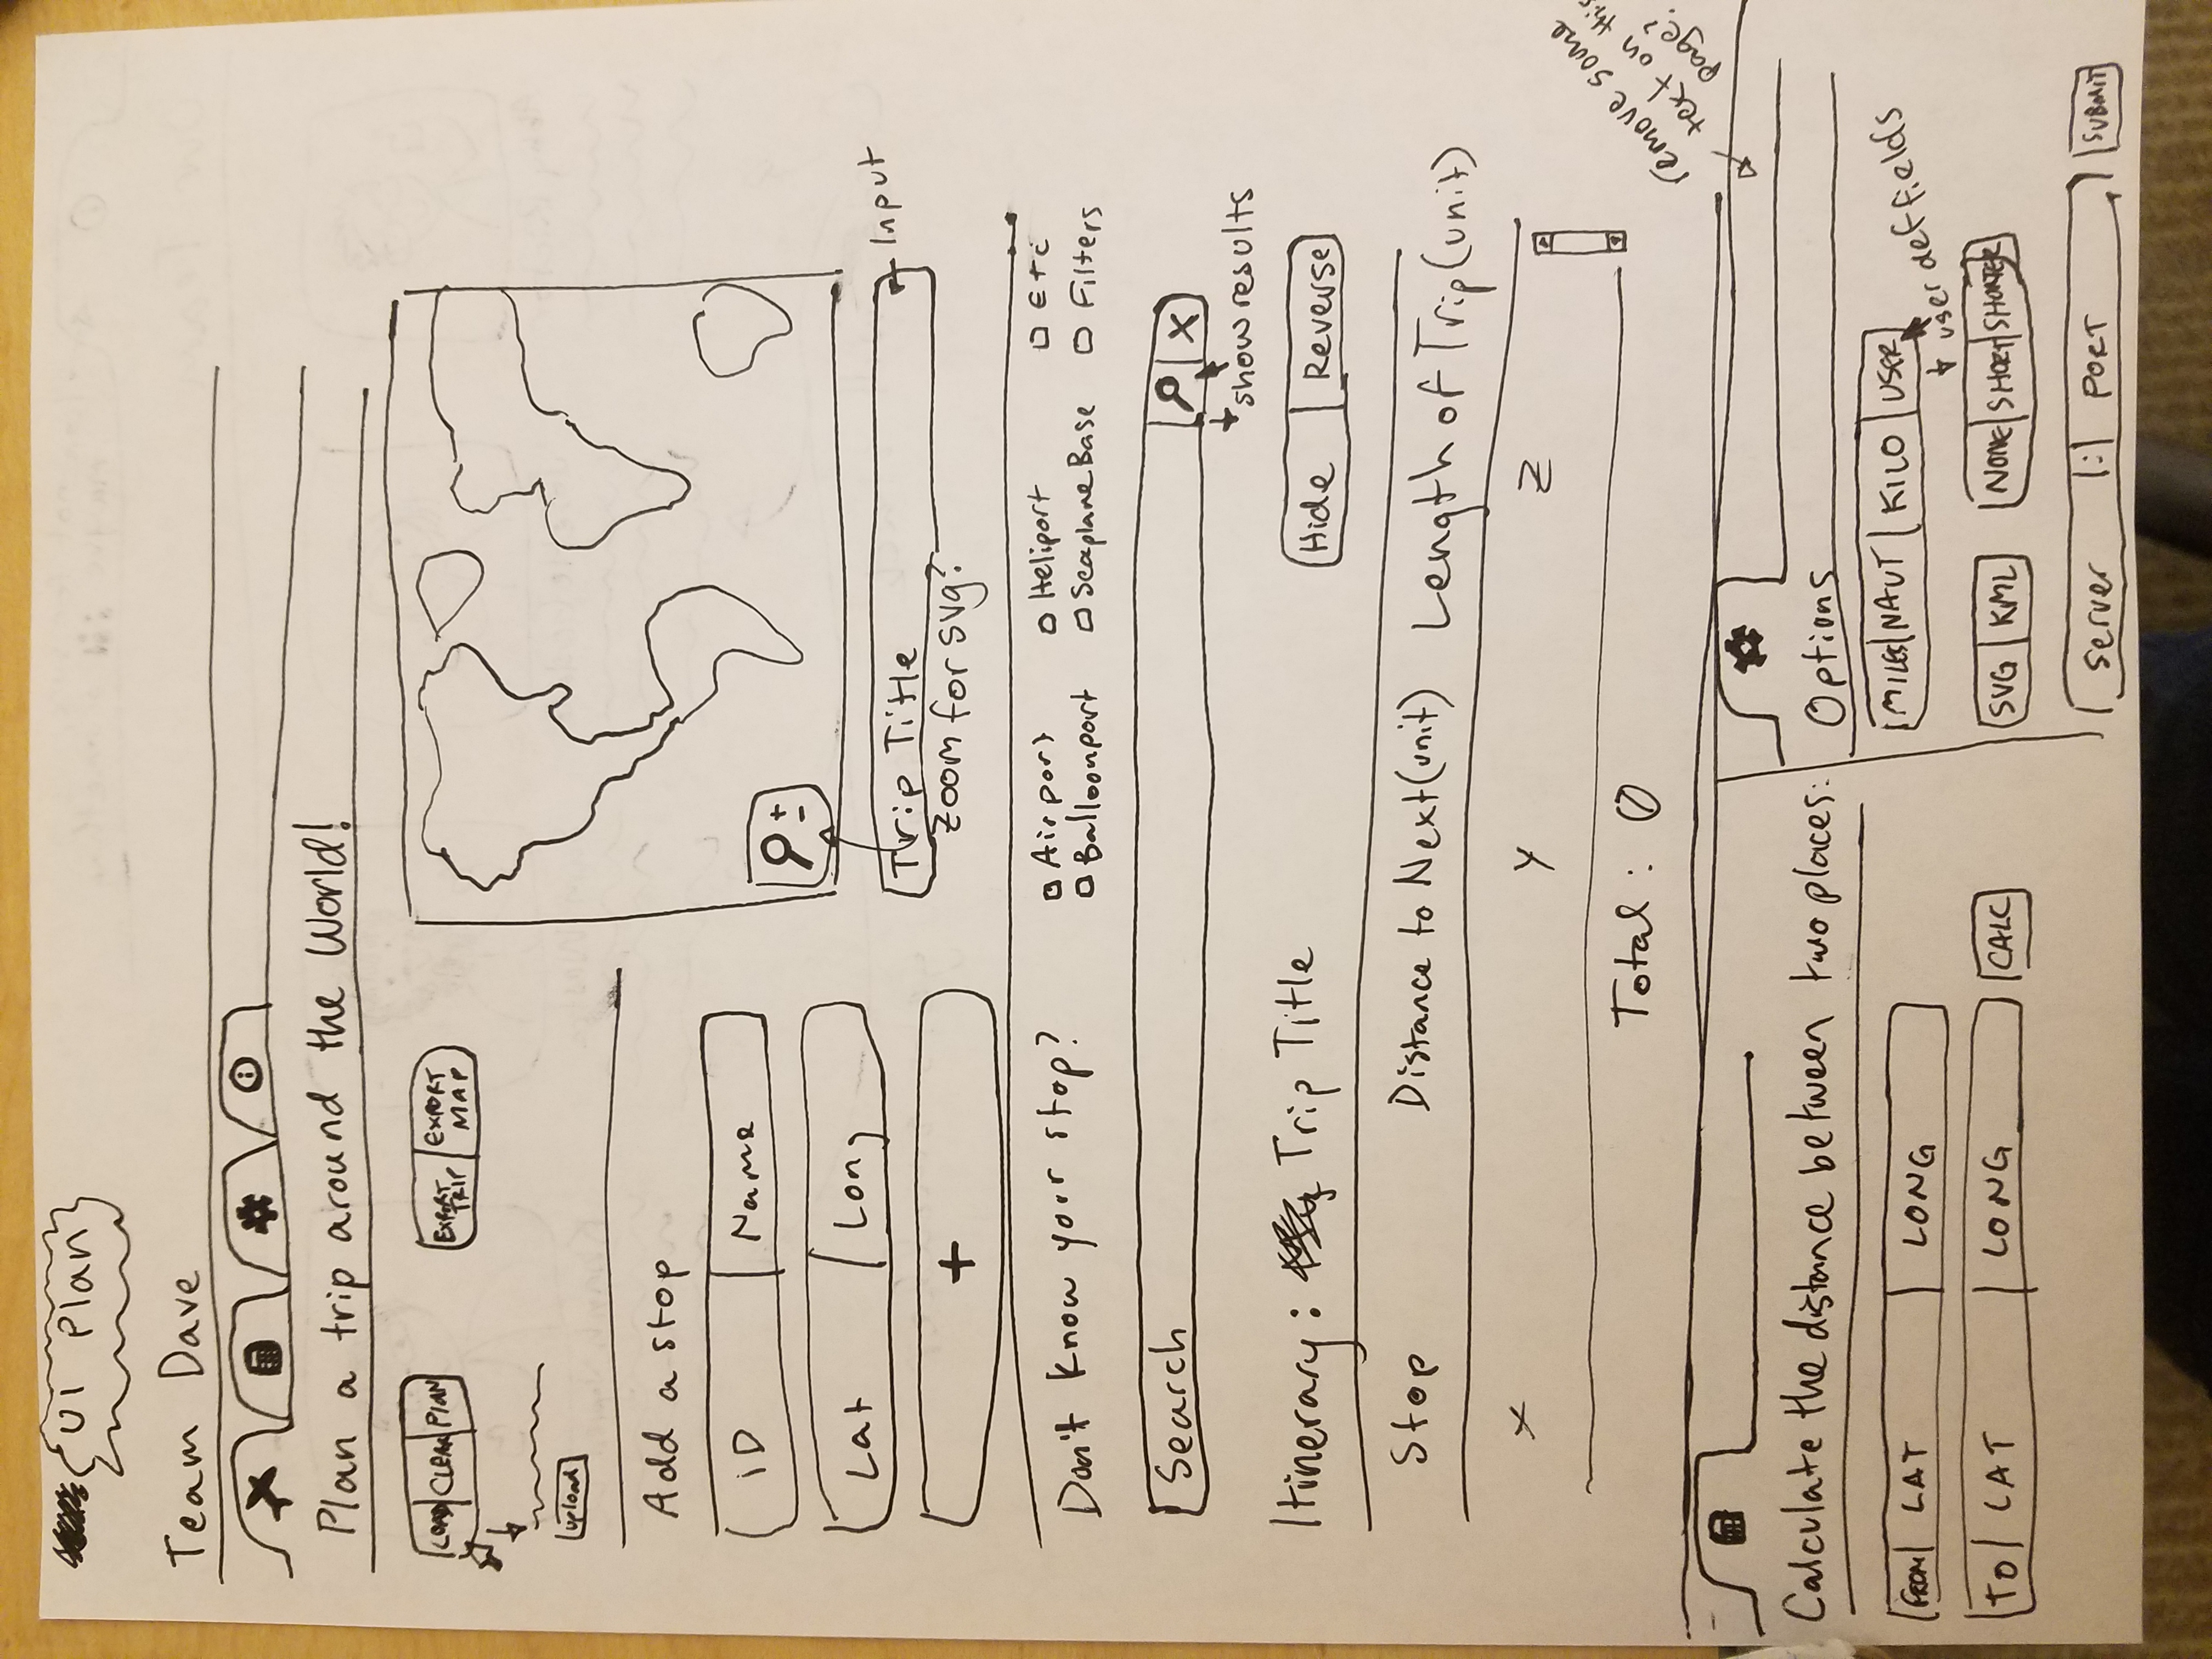 UI Plan
Team Dave
Plan a trip around the World!
LOAD CLEAR PLAN
EXPORT TRIP
EXPORT MAP
upload
Add a stop
ID Name
Lat Long
+
+
-
Trip Title
Input
Zoom for svg?
Don't know your stop?
Airport Heliport Etc
Balloonport Seaplane Base Filters
Search X
show results
Itinerary: Trip Title
Hide Reverse
Stop Distance to Next (unit) Length of Trip (unit)
X Y Z
Total: 0
remove some
text on this
page?
Calculate the distance between two places:
FROM LAT LONG
TO LAT LONG CALC
Options
MILES NAUT KILO USER
user def fields
SVG KML NONE SHORT SHORTER
Server : PORT SUBMIT